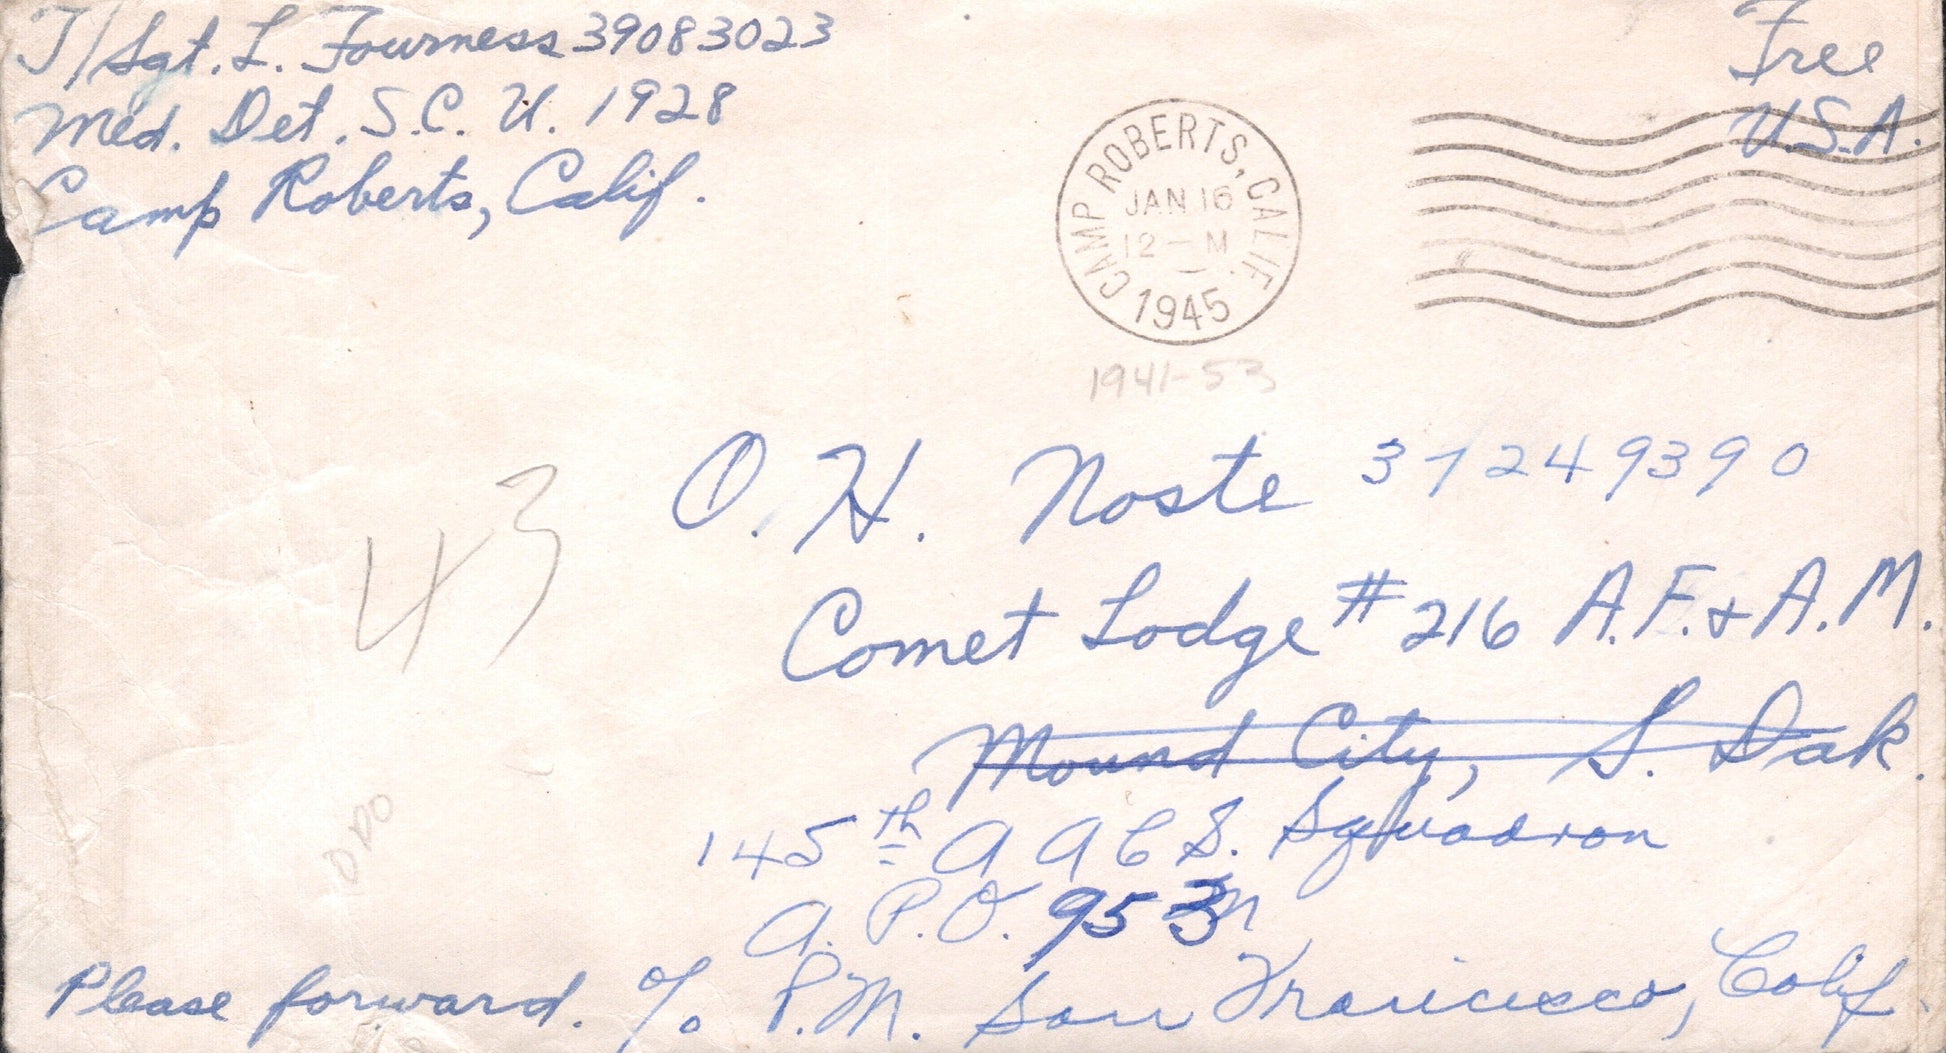 T/Sgt. L. Fourness 39083023
Med. Det. S.C. U. 1928
Camp Roberts, Calif.
Free
U.S.A.
CAMP ROBERTS, CALIF.
JAN 16
12 — M
1945
1941-53
43
O. H. Noste 37249390
Comet Lodge # 216 A.F. & A.M.
Mound City, S. Dak.
145th A A C S. Squadron
A. P.O. 953
Please forward. c/o P.M. San Francisco, Calif.